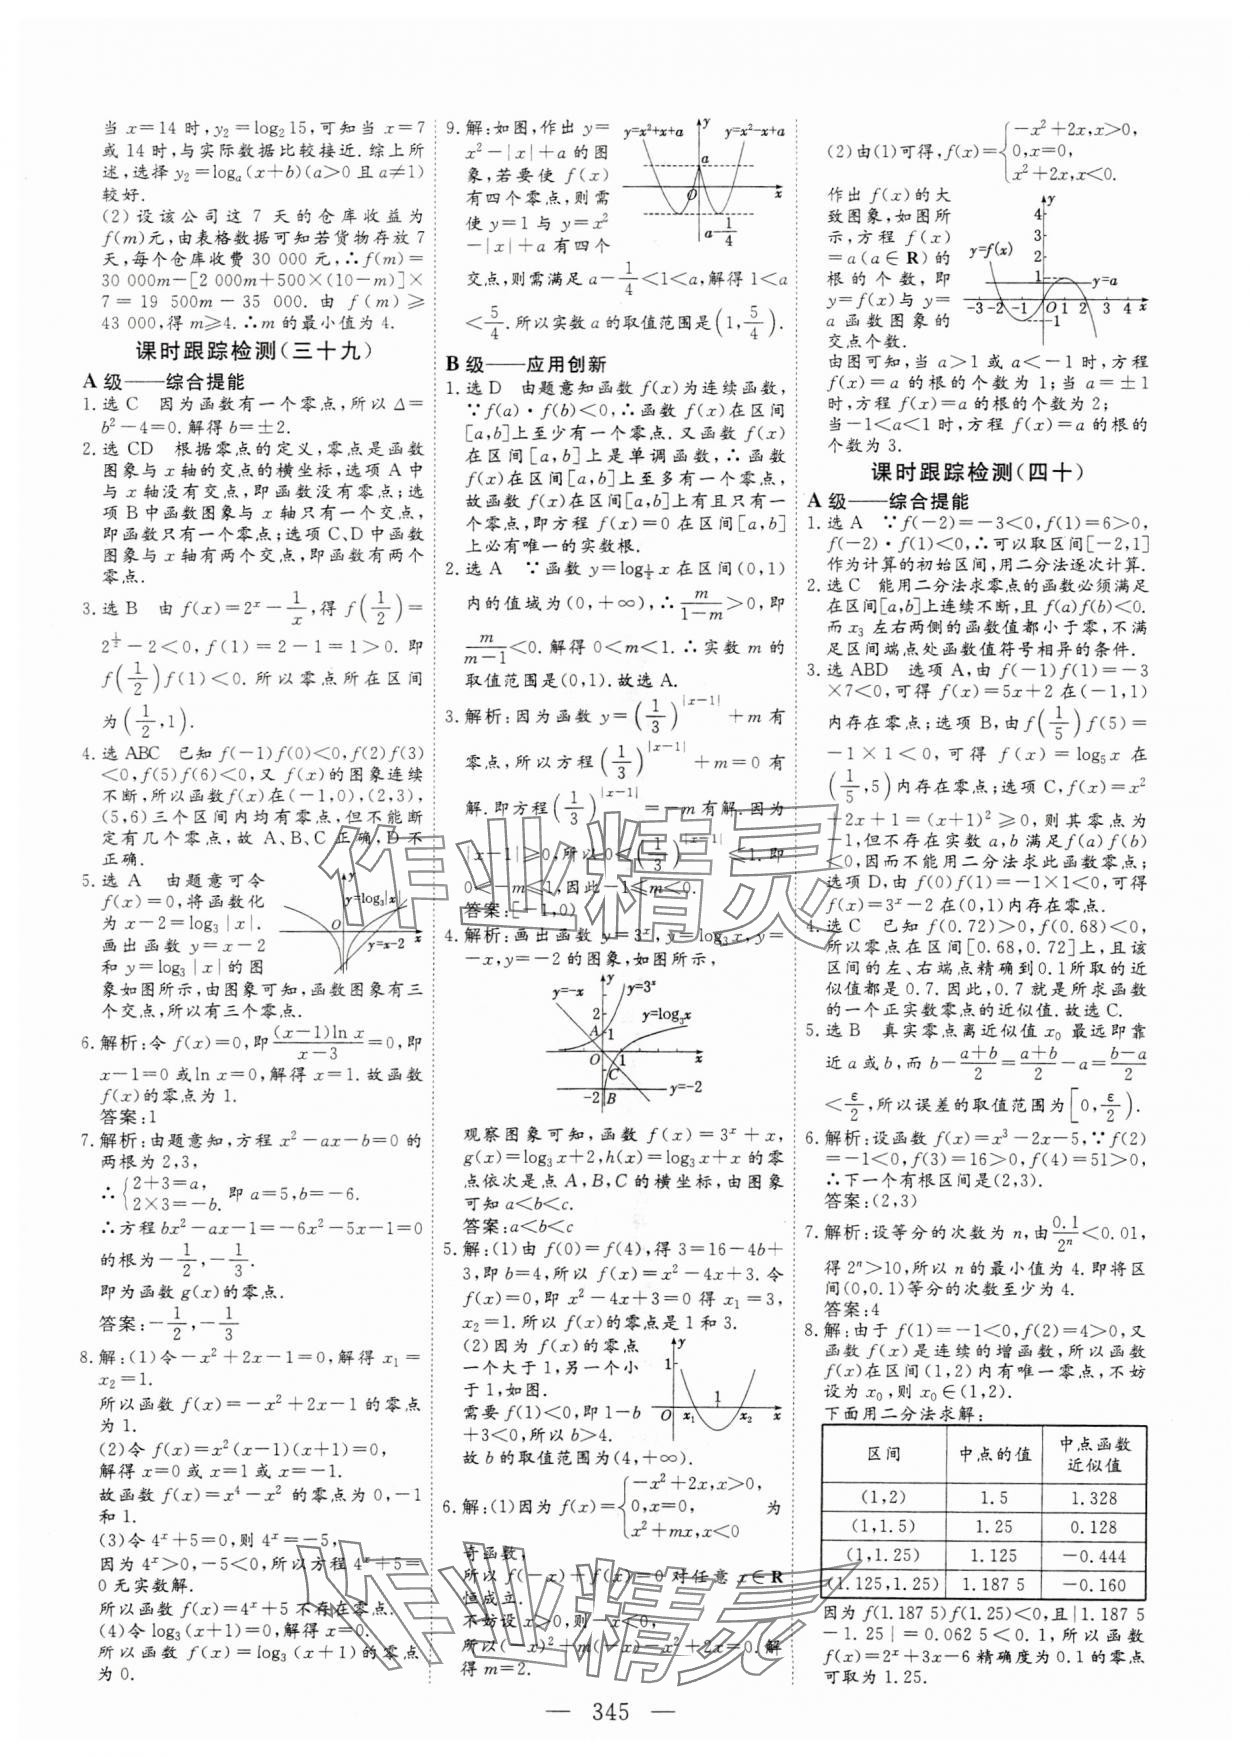 当 x=14 时, y₂=log₂15, 可知当 x=7
或 14 时, 与实际数据比较接近. 综上所
述, 选择 y₂=logₐ(x+b)(a>0 且 a≠1)
较好.
(2) 设该公司这 7 天的仓库收益为
f(m)元, 由表格数据可知若货物存放 7
天, 每个仓库收费 30 000 元, ∴f(m)=
30 000m-[2 000m+500×(10-m)]×
7=19 500m-35 000. 由 f(m)≥
43 000, 得 m≥4. ∴m 的最小值为 4.
课时跟踪检测(三十九)
A 级——综合提能
1. 选 C 因为函数有一个零点, 所以 Δ=
b²-4=0. 解得 b=±2.
2. 选 CD 根据零点的定义, 零点是函数
图象与 x 轴的交点的横坐标, 选项 A 中
与 x 轴没有交点, 即函数没有零点; 选
项 B 中函数图象与 x 轴只有一个交点,
即函数只有一个零点; 选项 C、D 中函数
图象与 x 轴有两个交点, 即函数有两个
零点.
3. 选 B 由 f(x)=2ˣ-1/x, 得 f(1/2)=
2^(1/2)-2<0, f(1)=2-1=1>0. 即
f(1/2)f(1)<0. 所以零点所在区间
为(1/2,1).
4. 选 ABC 已知 f(-1)f(0)<0, f(2)f(3)
<0, f(5)f(6)<0, 又 f(x)的图象连续
不断, 所以函数 f(x)在(-1,0),(2,3),
(5,6)三个区间内均有零点, 但不能断
定有几个零点, 故 A、B、C 正确, D 不
正确.
5. 选 A 由题意可令
f(x)=0, 将函数化
为 x-2=log₃|x|.
画出函数 y=x-2
和 y=log₃|x|的图
象如图所示, 由图象可知, 函数图象有三
个交点, 所以有三个零点.
y
y=log₃|x|
O
x
y=x-2
6. 解析: 令 f(x)=0, 即 (x-1)ln x/(x-3)=0, 即
x-1=0 或 ln x=0, 解得 x=1. 故函数
f(x)的零点为 1.
答案: 1
7. 解析: 由题意知, 方程 x²-ax-b=0 的
两根为 2,3,
∴{2+3=a, 2×3=-b. 即 a=5, b=-6.
∴方程 bx²-ax-1=-6x²-5x-1=0
的根为-1/2, -1/3.
即为函数 g(x)的零点.
答案: -1/2, -1/3
8. 解: (1) 令-x²+2x-1=0, 解得 x₁=
x₂=1.
所以函数 f(x)=-x²+2x-1 的零点
为 1.
(2) 令 f(x)=x²(x-1)(x+1)=0,
解得 x=0 或 x=1 或 x=-1.
故函数 f(x)=x⁴-x² 的零点为 0, -1
和 1.
(3) 令 4ˣ+5=0, 则 4ˣ=-5,
因为 4ˣ>0, -5<0, 所以方程 4ˣ+5=
0 无实数解.
所以函数 f(x)=4ˣ+5 不存在零点.
(4) 令 log₃(x+1)=0, 解得 x=0.
所以函数 f(x)=log₃(x+1)的零点
为 0.
9. 解: 如图, 作出 y=
x²-|x|+a 的图
象, 若要使 f(x)
有四个零点, 则需
使 y=1 与 y=x²
-|x|+a 有四个
交点, 则需满足 a-1/4<1<a, 解得 1<a
<5/4. 所以实数 a 的取值范围是(1,5/4).
y=x²+x+a
y
y=x²-x+a
a
O
x
a-1/4
B 级——应用创新
1. 选 D 由题意知函数 f(x)为连续函数,
∵f(a)·f(b)<0, ∴函数 f(x)在区间
[a,b]上至少有一个零点. 又函数 f(x)
在区间[a,b]上是单调函数, ∴函数
f(x)在区间[a,b]上至多有一个零点,
故函数 f(x)在区间[a,b]上有且只有一
个零点, 即方程 f(x)=0 在区间[a,b]
上必有唯一的实数根.
2. 选 A ∵函数 y=log_(1/2)x 在区间(0,1)
内的值域为(0,+∞), ∴m/(1-m)>0, 即
m/(m-1)<0. 解得 0<m<1. ∴实数 m 的
取值范围是(0,1). 故选 A.
3. 解析: 因为函数 y=(1/3)^|x-1|+m 有
零点, 所以方程(1/3)^|x-1|+m=0 有
解. 即方程(1/3)^|x-1|=-m 有解. 因为
|x-1|≥0, 所以 0<(1/3)^|x-1|≤1. 即
0<-m≤1, 因此-1≤m<0.
答案: [-1,0)
4. 解析: 画出函数 y=3ˣ, y=log₃x, y=
-x, y=-2 的图象, 如图所示,
y=-x
y
y=3ˣ
2
y=log₃x
A
1
O
1
x
C
-2
B
y=-2
观察图象可知, 函数 f(x)=3ˣ+x,
g(x)=log₃x+2, h(x)=log₃x+x 的零
点依次是点 A, B, C 的横坐标, 由图象
可知 a<b<c.
答案: a<b<c
5. 解: (1) 由 f(0)=f(4), 得 3=16-4b+
3, 即 b=4, 所以 f(x)=x²-4x+3. 令
f(x)=0, 即 x²-4x+3=0 得 x₁=3,
x₂=1. 所以 f(x)的零点是 1 和 3.
(2) 因为 f(x)的零点
一个大于 1, 另一个小
于 1, 如图.
需要 f(1)<0, 即 1-b
+3<0, 所以 b>4.
故 b 的取值范围为(4,+∞).
y
1
O
x₁
1
x₂
x
6. 解: (1) 因为 f(x)={-x²+2x, x>0, 0, x=0, x²+mx, x<0 为
奇函数,
所以 f(-x)+f(x)=0 对任意 x∈R
恒成立.
不妨设 x>0, 则-x<0,
所以(-x)²+m(-x)-x²+2x=0. 解
得 m=2.
(2) 由(1)可得, f(x)={-x²+2x, x>0, 0, x=0, x²+2x, x<0.
作出 f(x)的大
致图象, 如图所
示, 方程 f(x)
=a(a∈R)的
根的个数, 即
y=f(x)与 y=
a 函数图象的
交点个数.
y
4
3
2
y=f(x)
y=a
-3 -2 -1 O 1 2 3 4 x
-1
由图可知, 当 a>1 或 a<-1 时, 方程
f(x)=a 的根的个数为 1; 当 a=±1
时, 方程 f(x)=a 的根的个数为 2;
当-1<a<1 时, 方程 f(x)=a 的根的
个数为 3.
课时跟踪检测(四十)
A 级——综合提能
1. 选 A ∵f(-2)=-3<0, f(1)=6>0,
f(-2)·f(1)<0, ∴可以取区间[-2,1]
作为计算的初始区间, 用二分法逐次计算.
2. 选 C 能用二分法求零点的函数必须满足
在区间[a,b]上连续不断, 且 f(a)f(b)<0.
而 x₃ 左右两侧的函数值都小于零, 不满
足区间端点处函数值符号相异的条件.
3. 选 ABD 选项 A, 由 f(-1)f(1)=-3
×7<0, 可得 f(x)=5x+2 在(-1,1)
内存在零点; 选项 B, 由 f(1/5)f(5)=
-1×1<0, 可得 f(x)=log₅x 在
(1/5,5)内存在零点; 选项 C, f(x)=x²
+2x+1=(x+1)²≥0, 则其零点为
-1, 但不存在实数 a, b 满足 f(a)f(b)
<0, 因而不能用二分法求此函数零点;
选项 D, 由 f(0)f(1)=-1×1<0, 可得
f(x)=3ˣ-2 在(0,1)内存在零点.
4. 选 C 已知 f(0.72)>0, f(0.68)<0,
所以零点在区间[0.68,0.72]上, 且该
区间的左、右端点精确到 0.1 所取的近
似值都是 0.7. 因此, 0.7 就是所求函数
的一个正实数零点的近似值. 故选 C.
5. 选 B 真实零点离近似值 x₀ 最远即靠
近 a 或 b, 而 b-(a+b)/2=(a+b)/2-a=(b-a)/2
<ε/2, 所以误差的取值范围为[0,ε/2).
6. 解析: 设函数 f(x)=x³-2x-5, ∵f(2)
=-1<0, f(3)=16>0, f(4)=51>0,
∴下一个有根区间是(2,3).
答案: (2,3)
7. 解析: 设等分的次数为 n, 由 0.1/2ⁿ<0.01,
得 2ⁿ>10, 所以 n 的最小值为 4. 即将区
间(0,0.1)等分的次数至少为 4.
答案: 4
8. 解: 由于 f(1)=-1<0, f(2)=4>0, 又
函数 f(x)是连续的增函数, 所以函数
f(x)在区间(1,2)内有唯一零点, 不妨
设为 x₀, 则 x₀∈(1,2).
下面用二分法求解:
区间 中点的值 中点函数近似值
(1,2) 1.5 1.328
(1,1.5) 1.25 0.128
(1,1.25) 1.125 -0.444
(1.125,1.25) 1.187 5 -0.160
因为 f(1.187 5)f(1.25)<0, 且|1.187 5
-1.25|=0.062 5<0.1, 所以函数
f(x)=2ˣ+3x-6 精确度为 0.1 的零点
可取为 1.25.
作业精灵
作业精灵
— 345 —